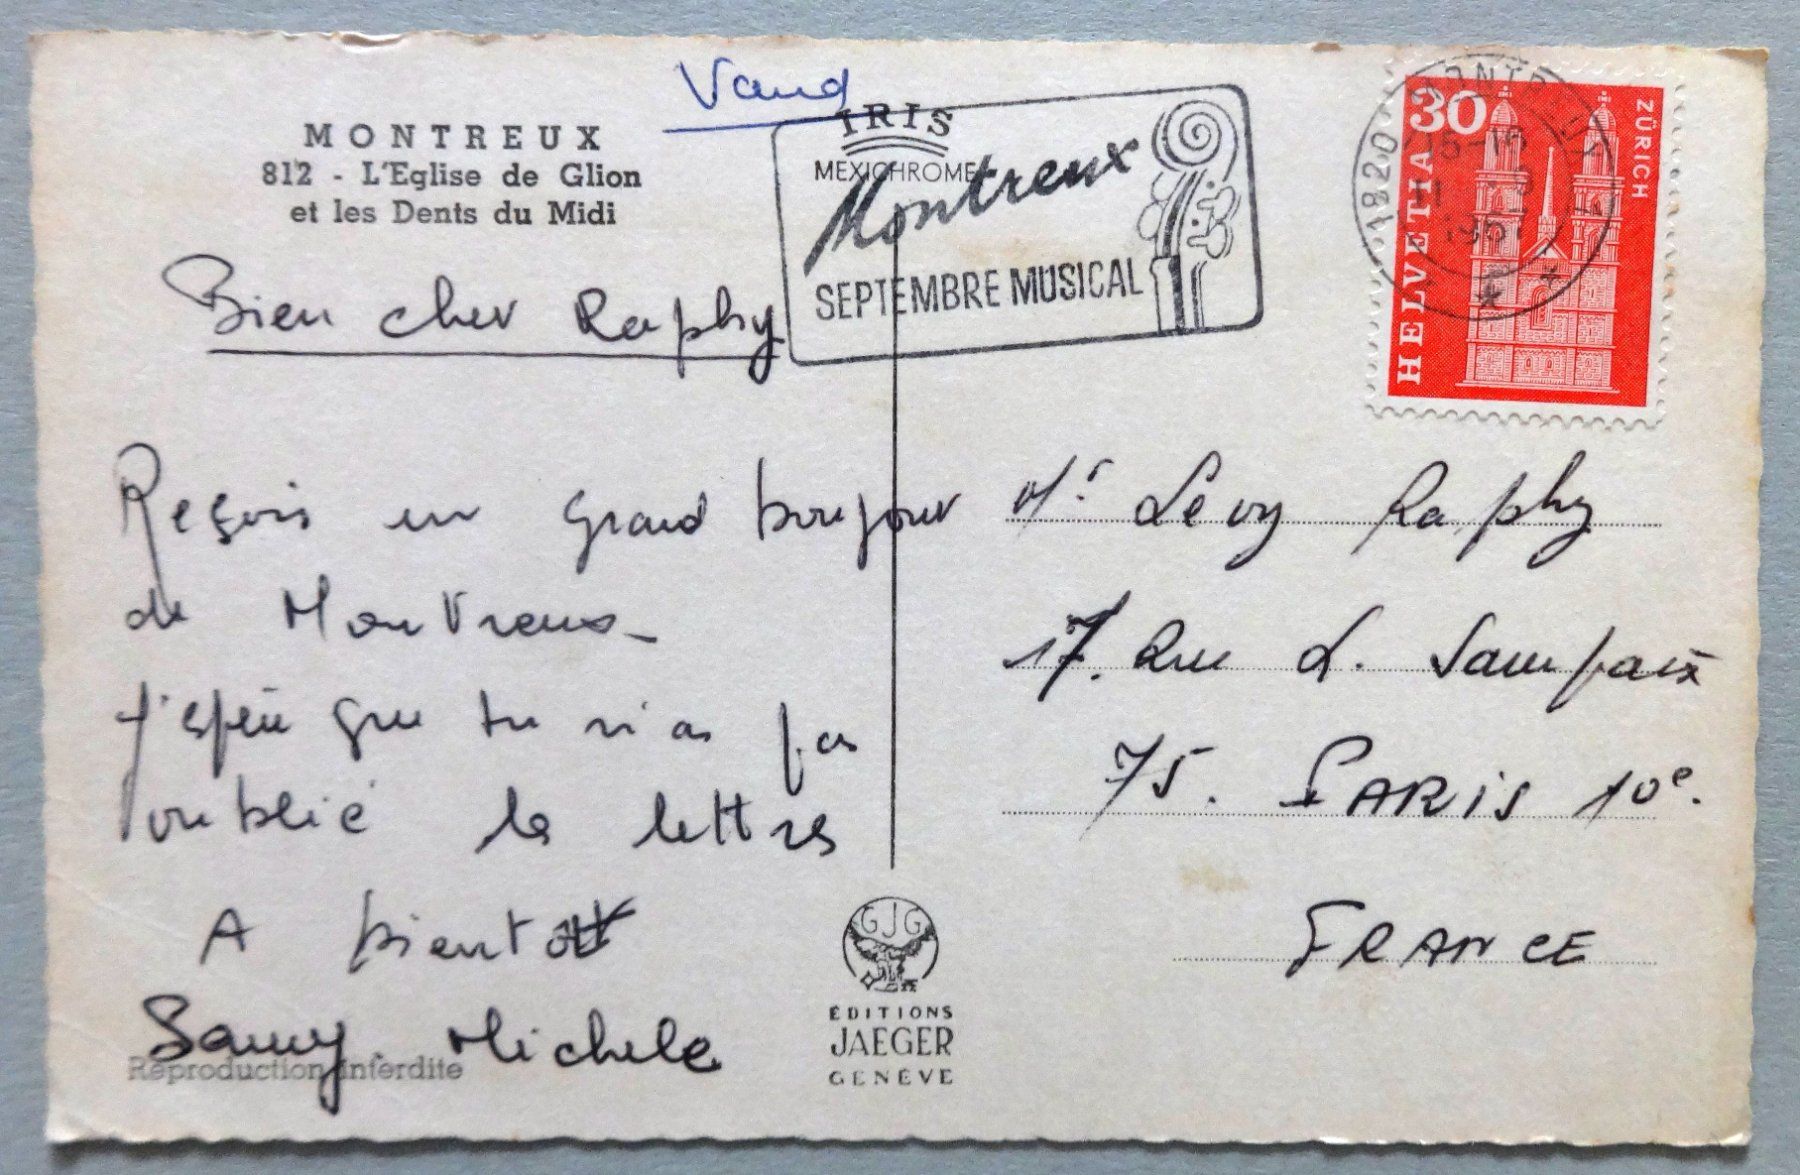 Vaud
MONTREUX
812 - L'Eglise de Glion
et les Dents du Midi
IRIS
MEXICHROME
Montreux
SEPTEMBRE MUSICAL
30
HELVETIA
ZÜRICH
1820 MONTREUX
15-16
1967
Bien cher Raphy
Reçois un grand bonjour
de Montreux -
J'espère que tu n'as pas
oublié les lettres
A bientôt
Samy. Michele
Reproduction interdite
Mr. Lévy Raphy
17. Rue L. Sampaix
75. PARIS 10e.
FRANCE
GJG
ÉDITIONS
JAEGER
GENÈVE